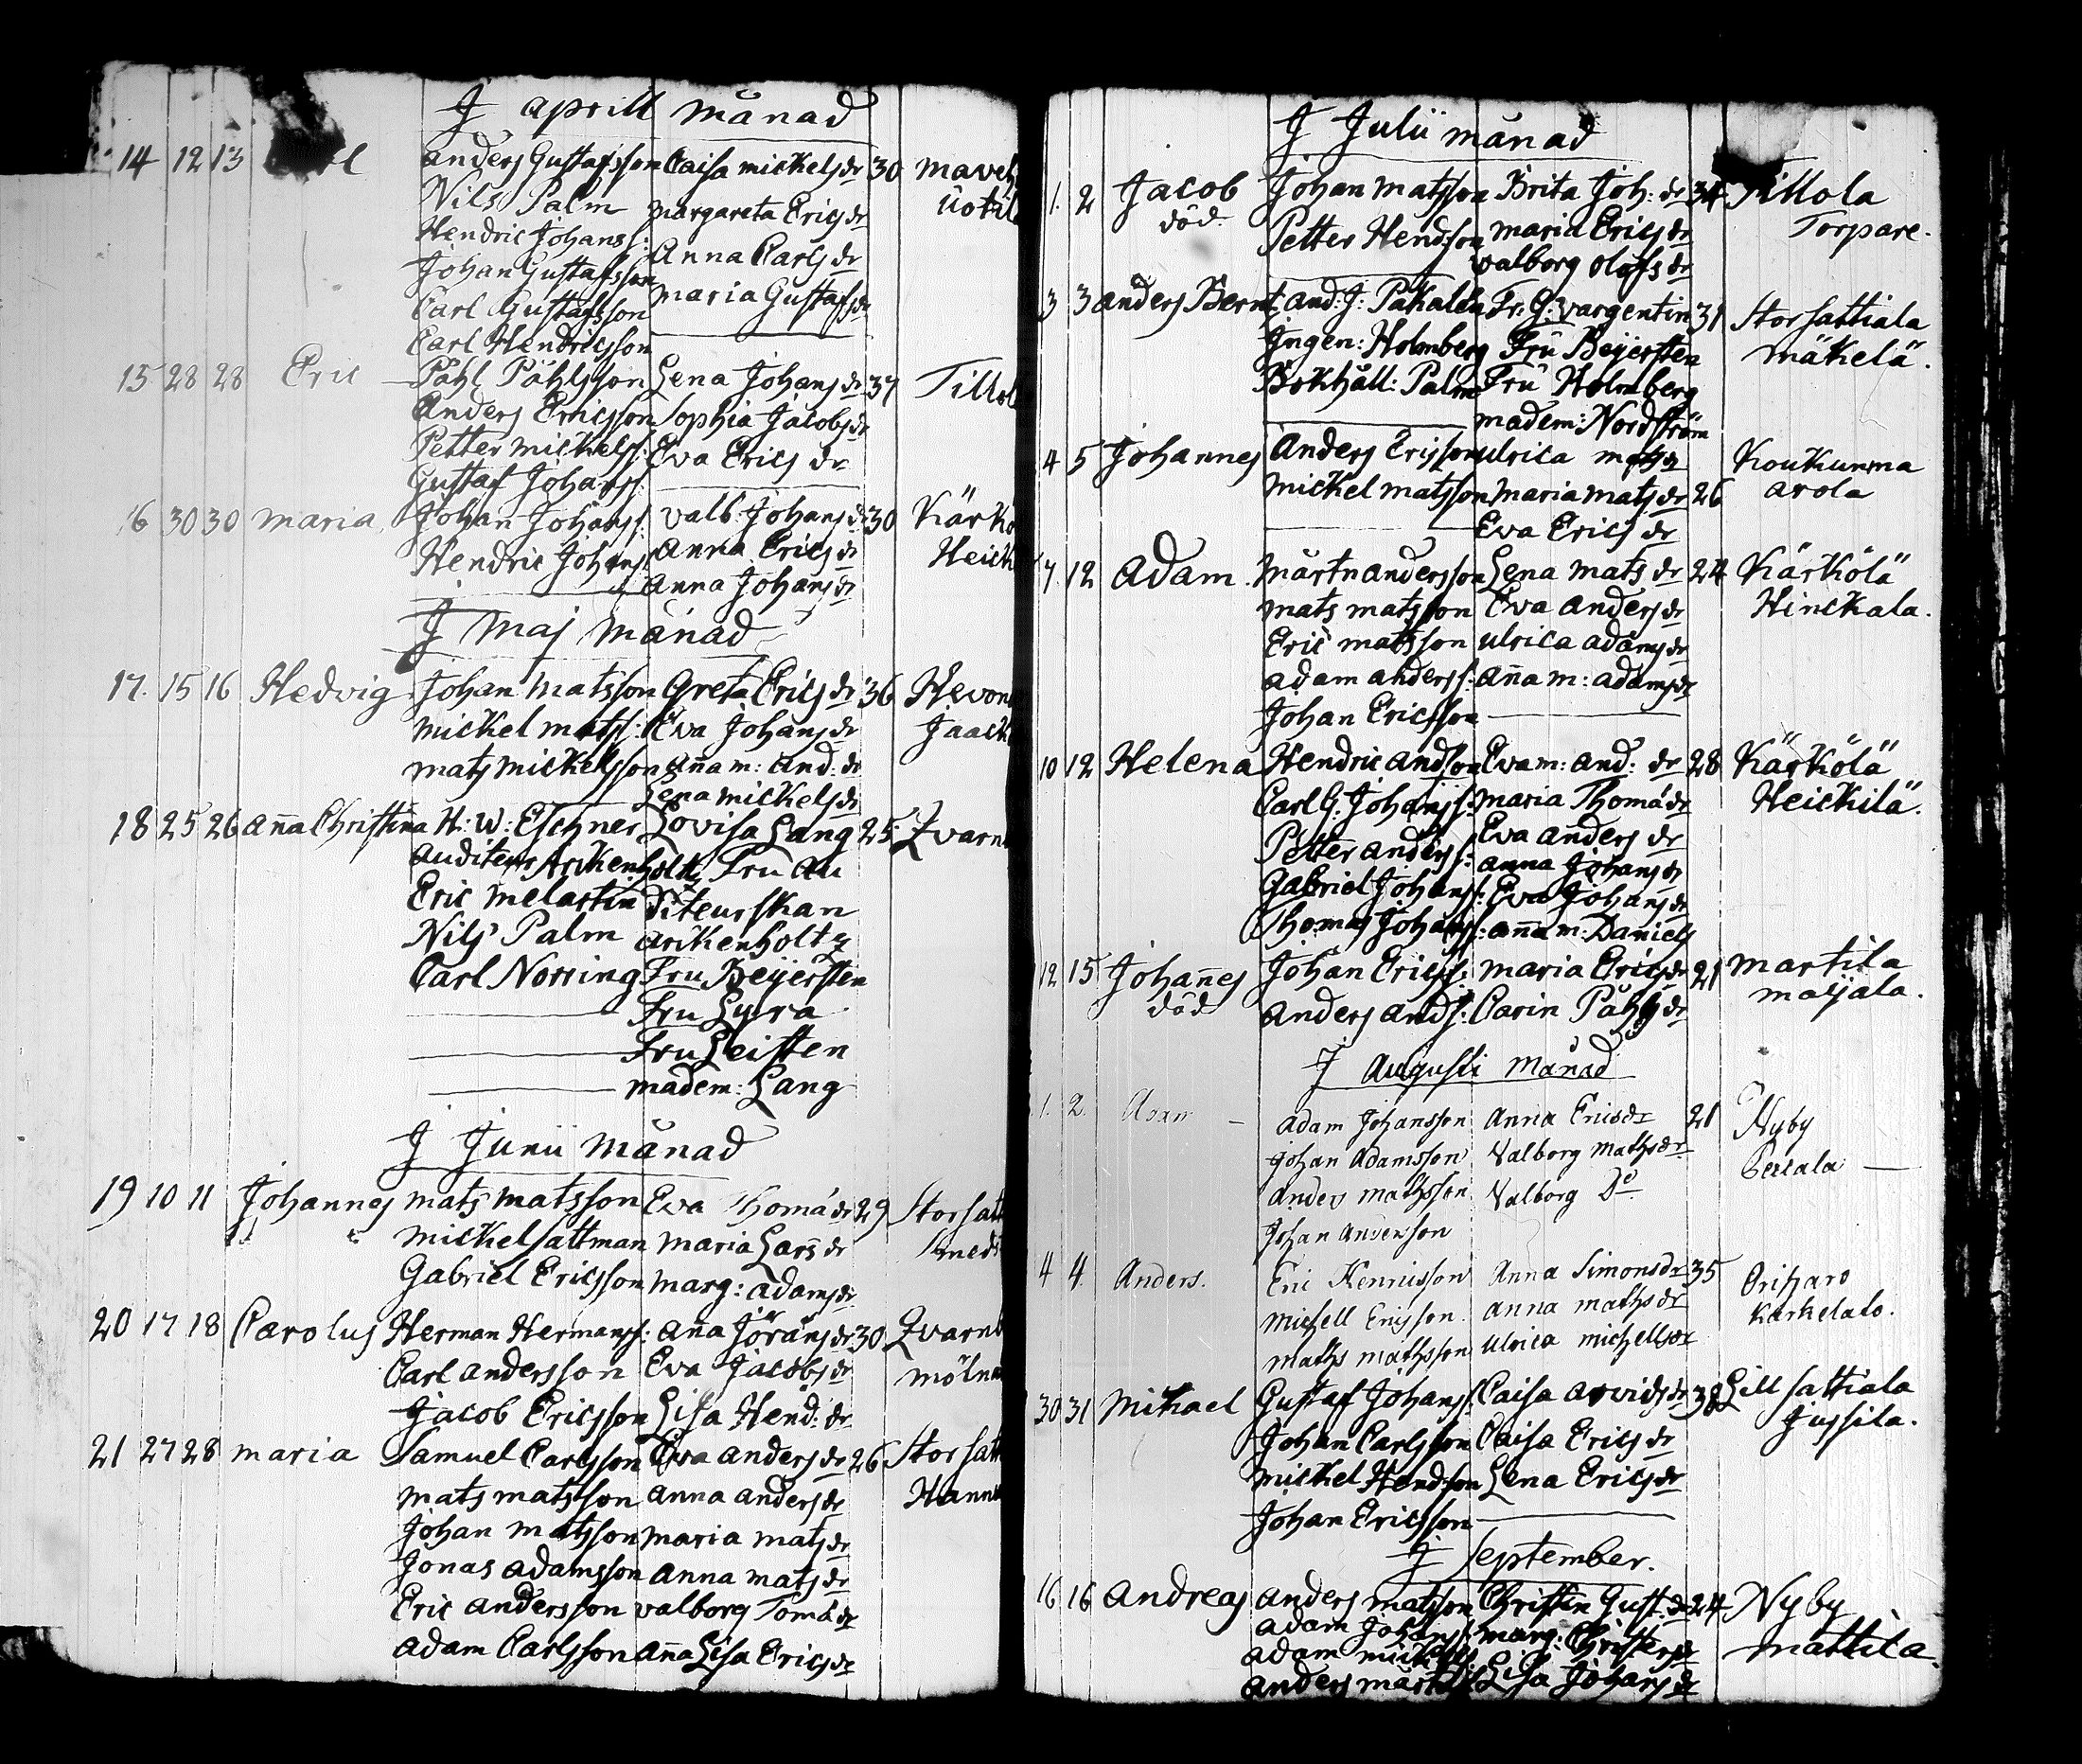 J aprill månad
14 12 13 anders Gustafsson Caisa mickels dr 30
Nils Palm margareta Erics dr
Hendric Johanss: Anna Carls dr
Johan Gustafsson maria Gustafs dr
Carl Gustafsson
Carl Hendricsson
15 28 28 Eric Påhl Påhlsson Lena Johans dr 37
Anders Ericsson Sophia Jacobs dr
Petter mickelss: Eva Erics dr
Gustaf Johanss
16 30 30 maria Johan Johanss: valb: Johans dr 30
Hendric Johanss Anna Erics dr
Anna Johans dr
J Maj månad
17. 15 16 Hedvig Johan Matsson Greta Erics dr 36
mickel matss: Eva Johans dr
mats mickelsson aña m: and: dr
Lena mickels dr
18 25 26 aña Christina H: W: Eschner Lovisa Lang 25
auditeur Arckenholtz Fru Au
Eric melartin diteurskan
Nils Palm arckenholtz
Carl Norring Fru Beijersten
Fru Lyra
Fru Leisten
madem: Lang
J Junii månad
19 10 11 Johannes mats matsson Eva Thomä dr 29
mickel sattman maria Lars dr
Gabriel Ericsson marg: adams dr
20 17 18 Carolus Herman Hermanss: aña Jörans dr 30
Carl andersson Eva Jacobs dr
Jacob Ericsson Lisa Hend: dr
21 27 28 maria Samuel Carlsson Eva anders dr 26
mats matsson anna anders dr
Johan matsson maria mats dr
Jonas adamsson anna mats dr
Eric andersson valborg Tomä dr
adam Carlsson aña Lisa Erics dr
J Julii månad
1. 2 Jacob Johan matsson Brita Joh: dr 34 Tillola
död. Petter Hendsson maria Erics dr Torpare.
valborg olofs dr
3 3 anders Bernt. and: J: Pakalén Fr: G: vargentin 31 Storsattiala
Ingen: Holmberg Fru Beijersten mäkelä.
Bokhåll: Palm Fru Holmberg
madem: Nordström
4 5 Johannes Anders Ericsson ulrica mats dr Koukunma
mickel matsson maria mats dr 26 arola
Eva Erics dr
7. 12 Adam. Mårtn andersson Lena mats dr 24 Kärkölä
mats matsson Eva anders dr Hinckala.
Eric matsson ulrica adams dr
adam anderss: aña m: adams dr
Johan Ericsson
10 12 Helena Hendric andsson Eva m: and: dr 28 Kärkölä
Carl G: Johanss: maria Thomä dr Heickilä.
Petter anderss: Eva anders dr
anna Johans dr
Gabriel Johanss: Eva Johans dr
Thomas Johanss: aña m: Daniels
12. 15 Johañes Johan Ericss: maria Erics dr 21 martila
död anders ands: Carin Påhls dr maijala.
J Augusti Månad
1. 2. Adam Adam Johansson Anna Ericsdr 21 Nyby
Johan Adamsson Valborg Mathsdr
Anders mathsson Valborg Do
Johan Andersson
4 4. Anders. Anna Simonsdr 35
Michell Ericsson. Anna mathsdr Karkelato.
Maths mathsson Ulrica michellsdr
30 31 Mikael Gustaf Johanss: Caisa arvids dr 38 Lill sattiala
Johan Carlsson Caisa Erics dr Jussila.
mickel Hendsson Lena Erics dr
Johan Ericsson
J September.
16 16 Andreas anders matsson Christin Gust: dr 24 Nyby
adam Johanss: marg: Christers dr mattila.
adam mickelss:
anders Lisa Johans dr